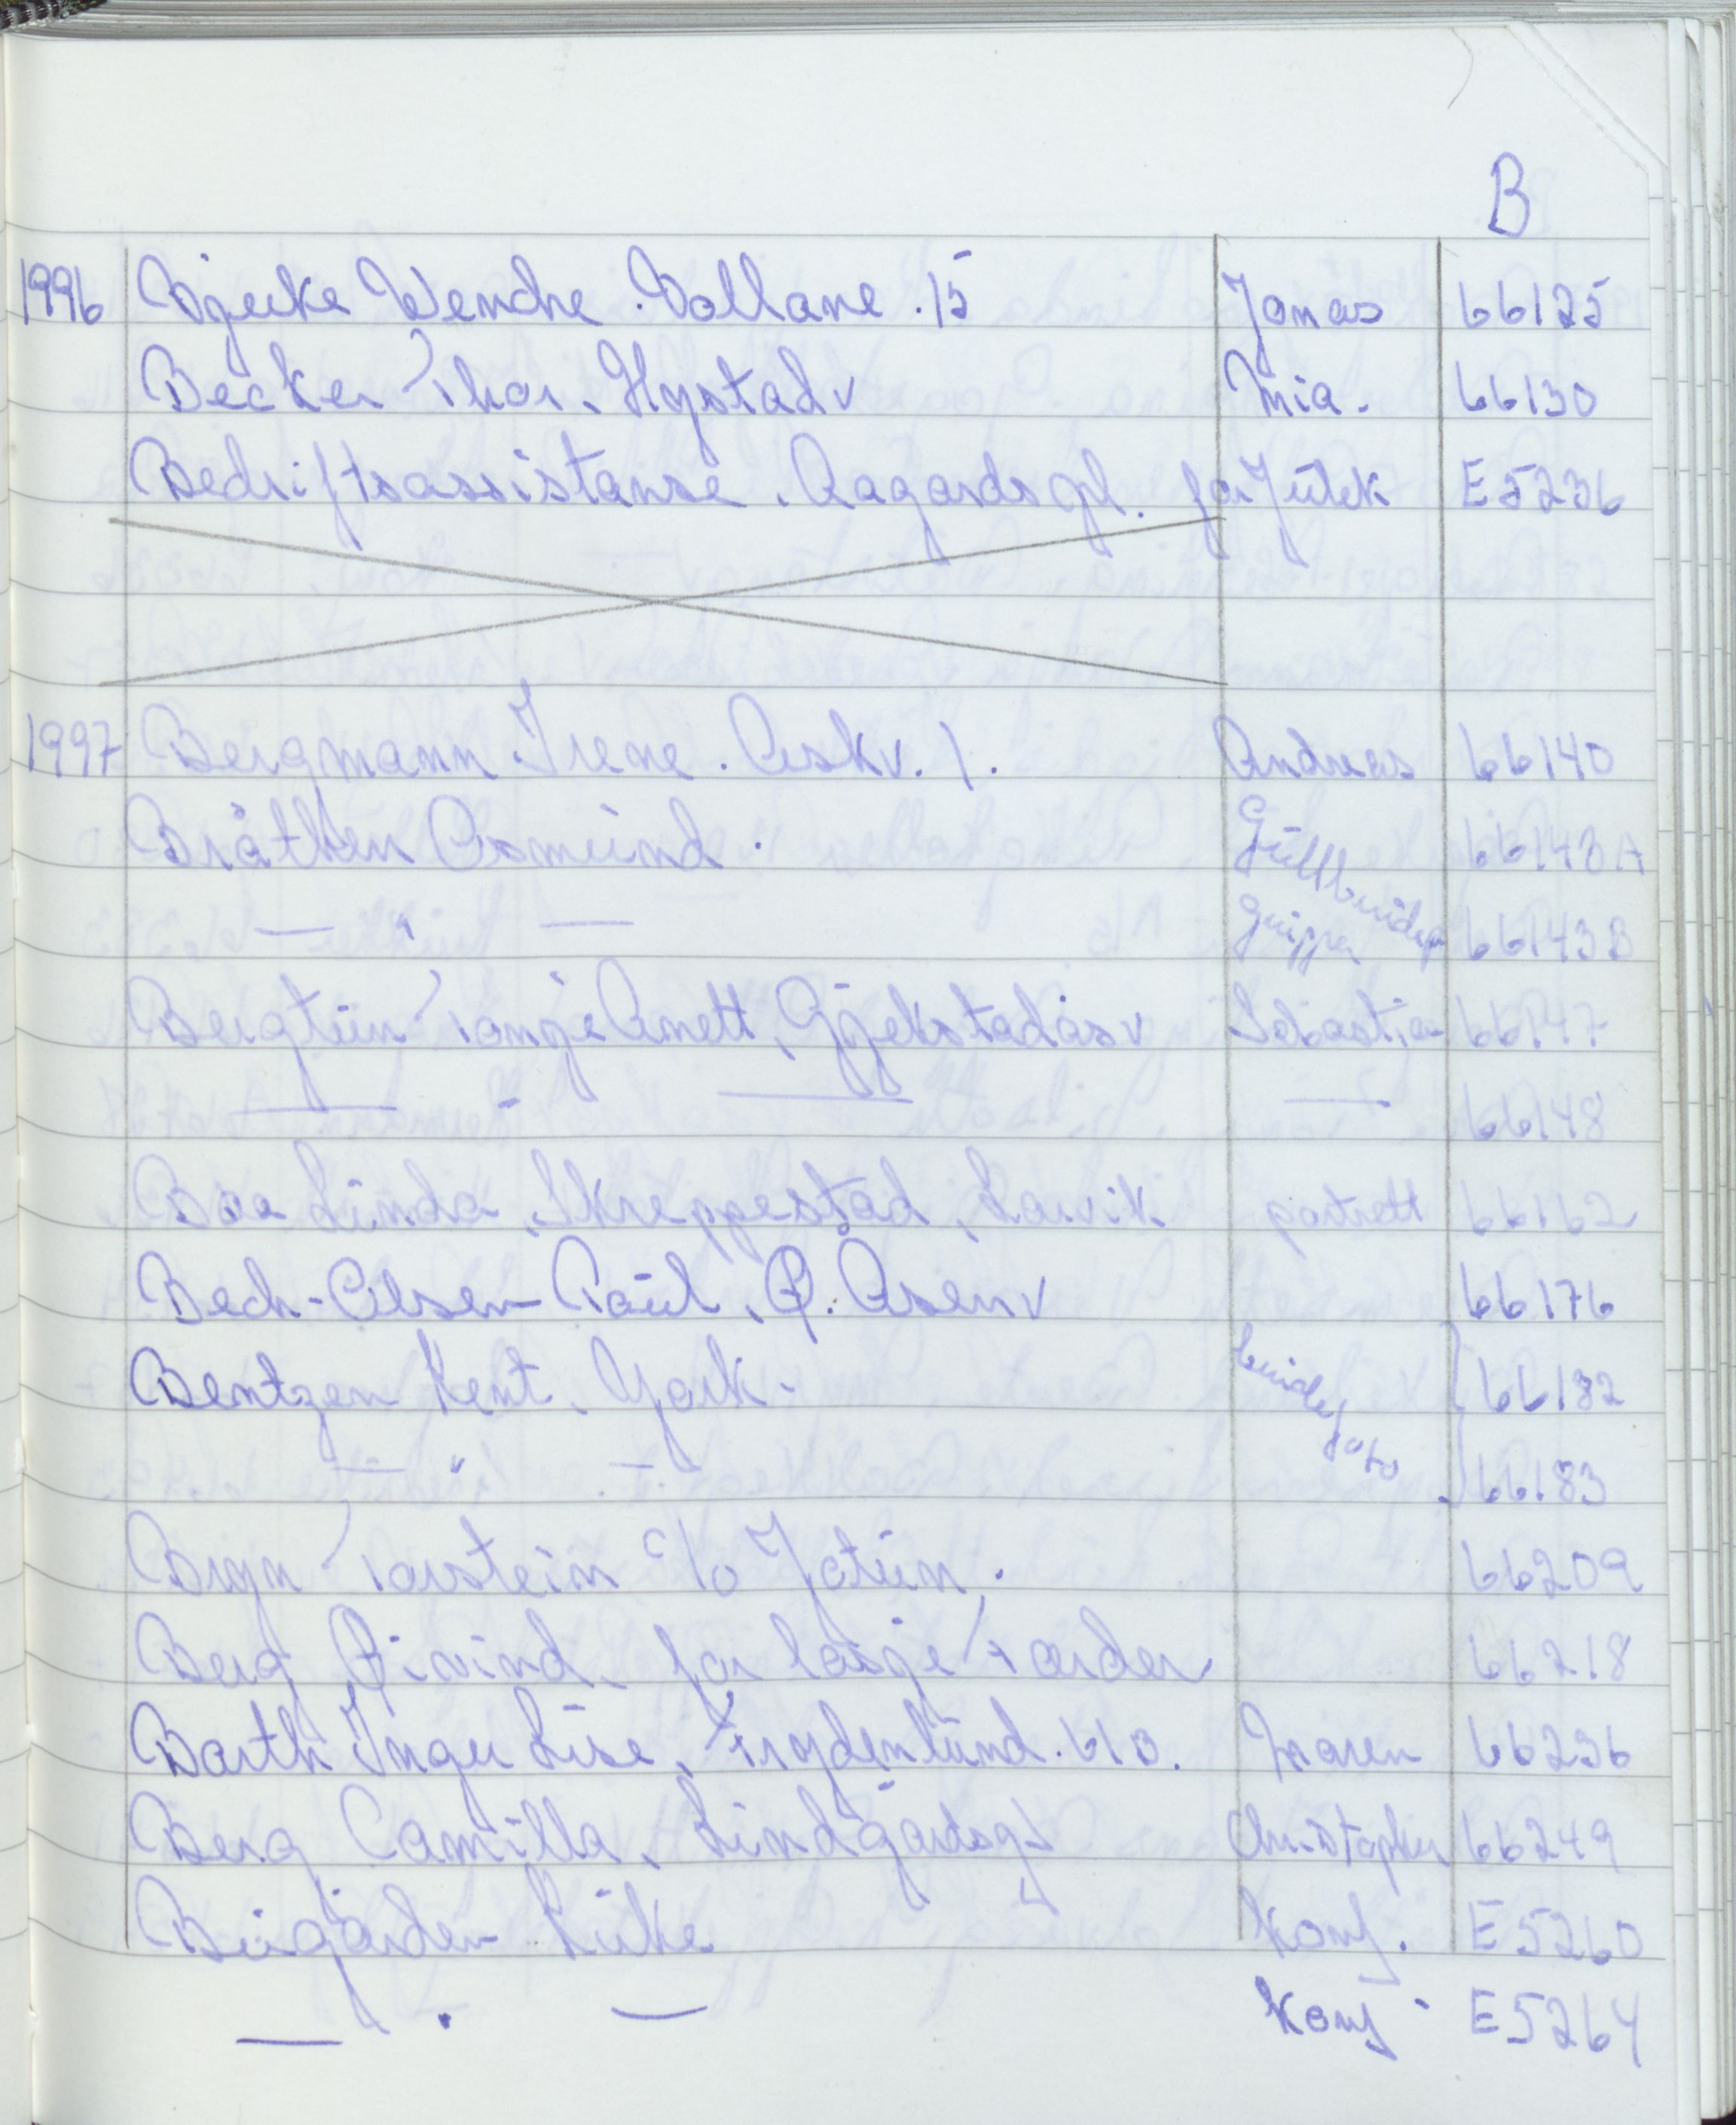 B
1996 Bjerke Wenche. Vollane. 15 Jonas 66125
Becker Thor. Hystadv Mia. 66130
Bedriftsassistanse. Aagaardsgl. for Jülek E5236
1997 Bergmann Irene. Askv. 1. Andreas 66140
Bråthen Åsmund. Gullbrudepar 66143A
— " — Gruppe 66143B
Bergtun Tonje Anett, Gjekstadåsv Sebastian 66147
— " — — 66148
Boe Linda, Skreppestad, Larvik portrett 66162
Bech-Olsen Paul, Ø. Åsenv 66176
Bentzen Kent. York. brudefoto 66182
— " — 66183
Bryn Torstein c/o Jotun. 66209
Berg Øivind, for losje Færder 66218
Barth Inger Lise, Frydenlund. 610. Maren 66236
Berg Camilla, Lindgårdsgt Christopher 66249
Bugården Kirke Konf. E5260
— " — Konf. E5264